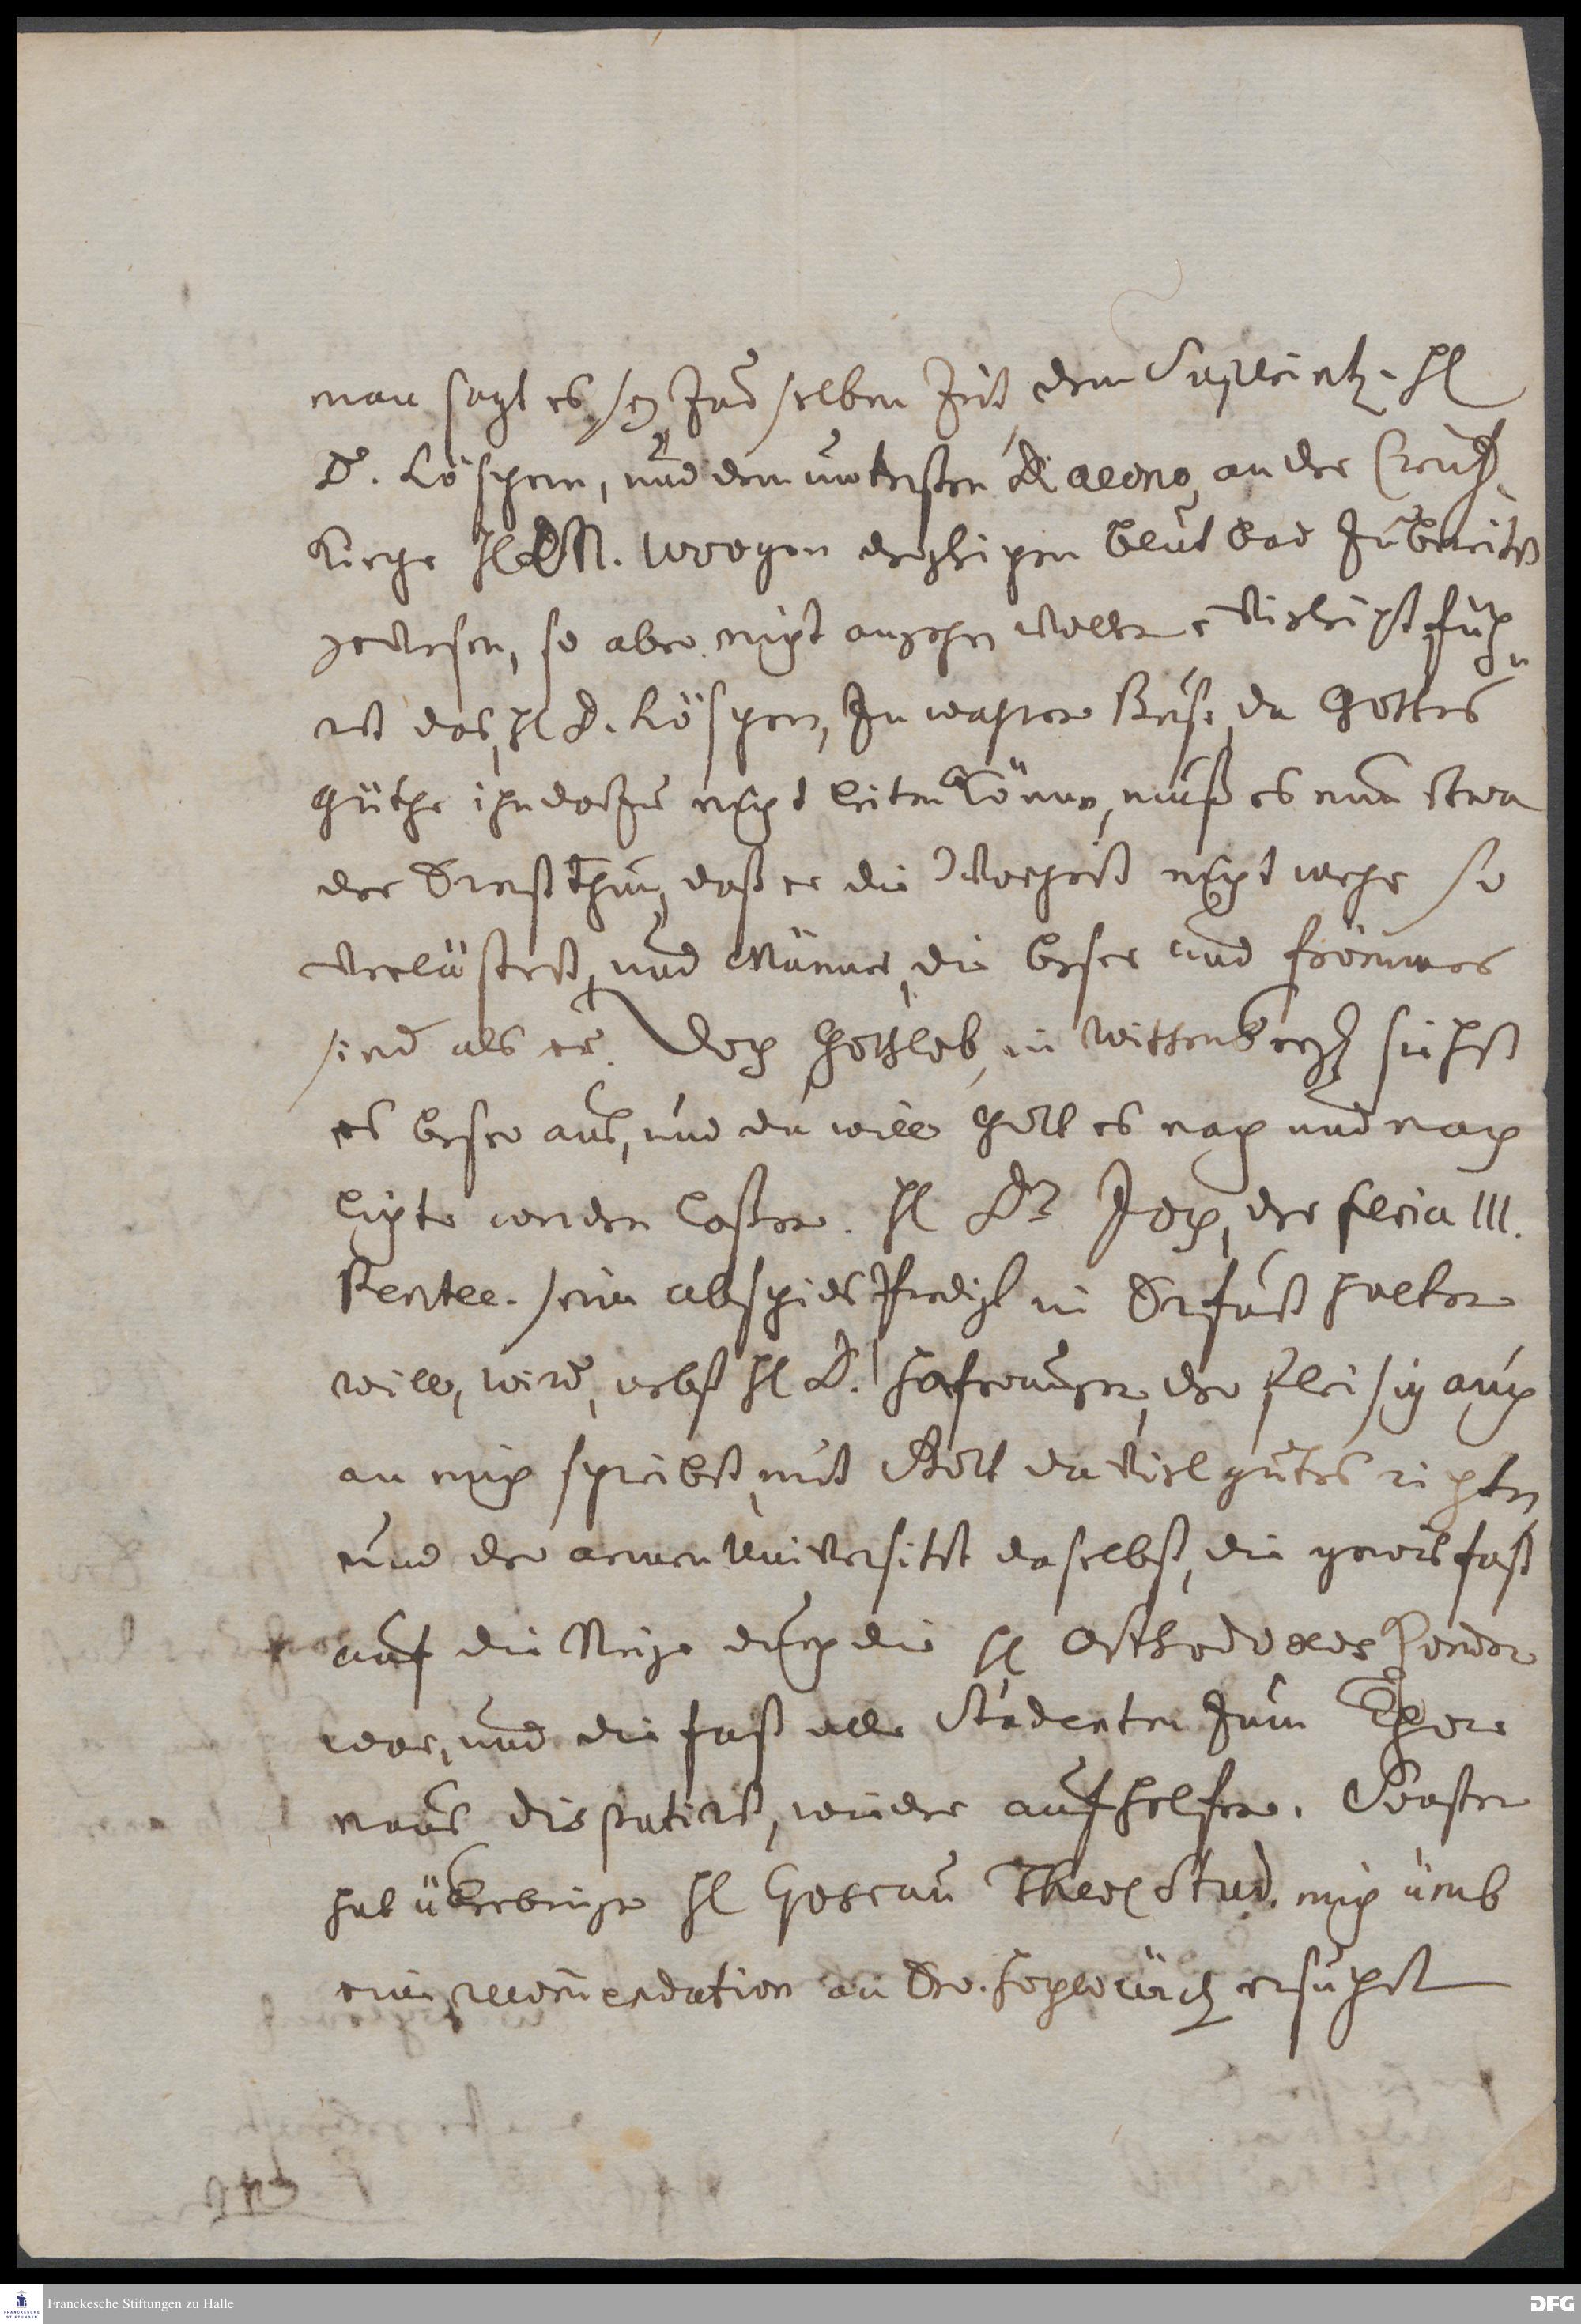 man sagt es sey zu derselben Zeit dem Superint. H.
D. Löschern, und dem untersten Diacono, an der Creutz
Kirche H. M. Woogen dergleichen blut bad zubereitet
gewesen, so aber nicht angehen wollen. Vielleicht füh
ret das, H. D. Löschern, zu wahrer Buße, da Gottes
Güthe ihn darzu nicht leiten können, muß es nun etwa
der Ernst thun, daß er die Warheit nicht mehr so
verlästert, und Männer, die besser und frömmer
sind als er. Doch Gottlob, in Wittenberg siehet
es besser aus, und da will Gott es nach und nach
lichte werden laßen. H. Dr. Zoch, der feria III.
Pentec. seine abschieds Predigt in Erfurt halten
will, wird, nebst H. D. Haferungen, der fleisig auch
an mich schreibet, mit Gott da viel gutes richten
und der armen Universitet daselbst, die gewis fast
auf die Neige durch die H. Orthodoxos kommen
war, und die fast alle Studenten zum Thore
naus disputiret, wieder aufhelfen. Sonsten
hat überbringer H. Goscau Theol. Stud. mich umb
eine recommendation an Ew. Hochwürd. ersuchet